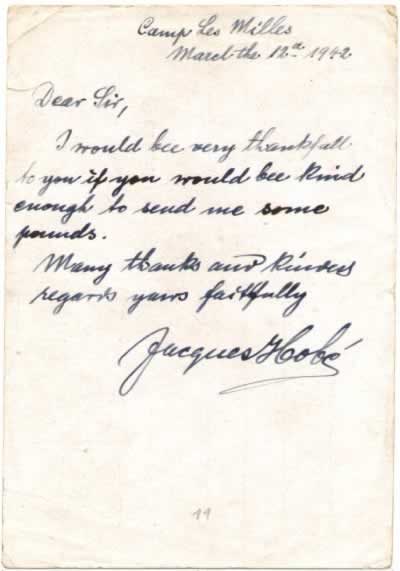 Camp Les Milles
March the 12th 1942
Dear Sir,
I would bee very thankfull
to you if you would bee kind
enough to send me some
pounds.
Many thanks and kindess
regards yours faithfully
Jacques Hobé
11